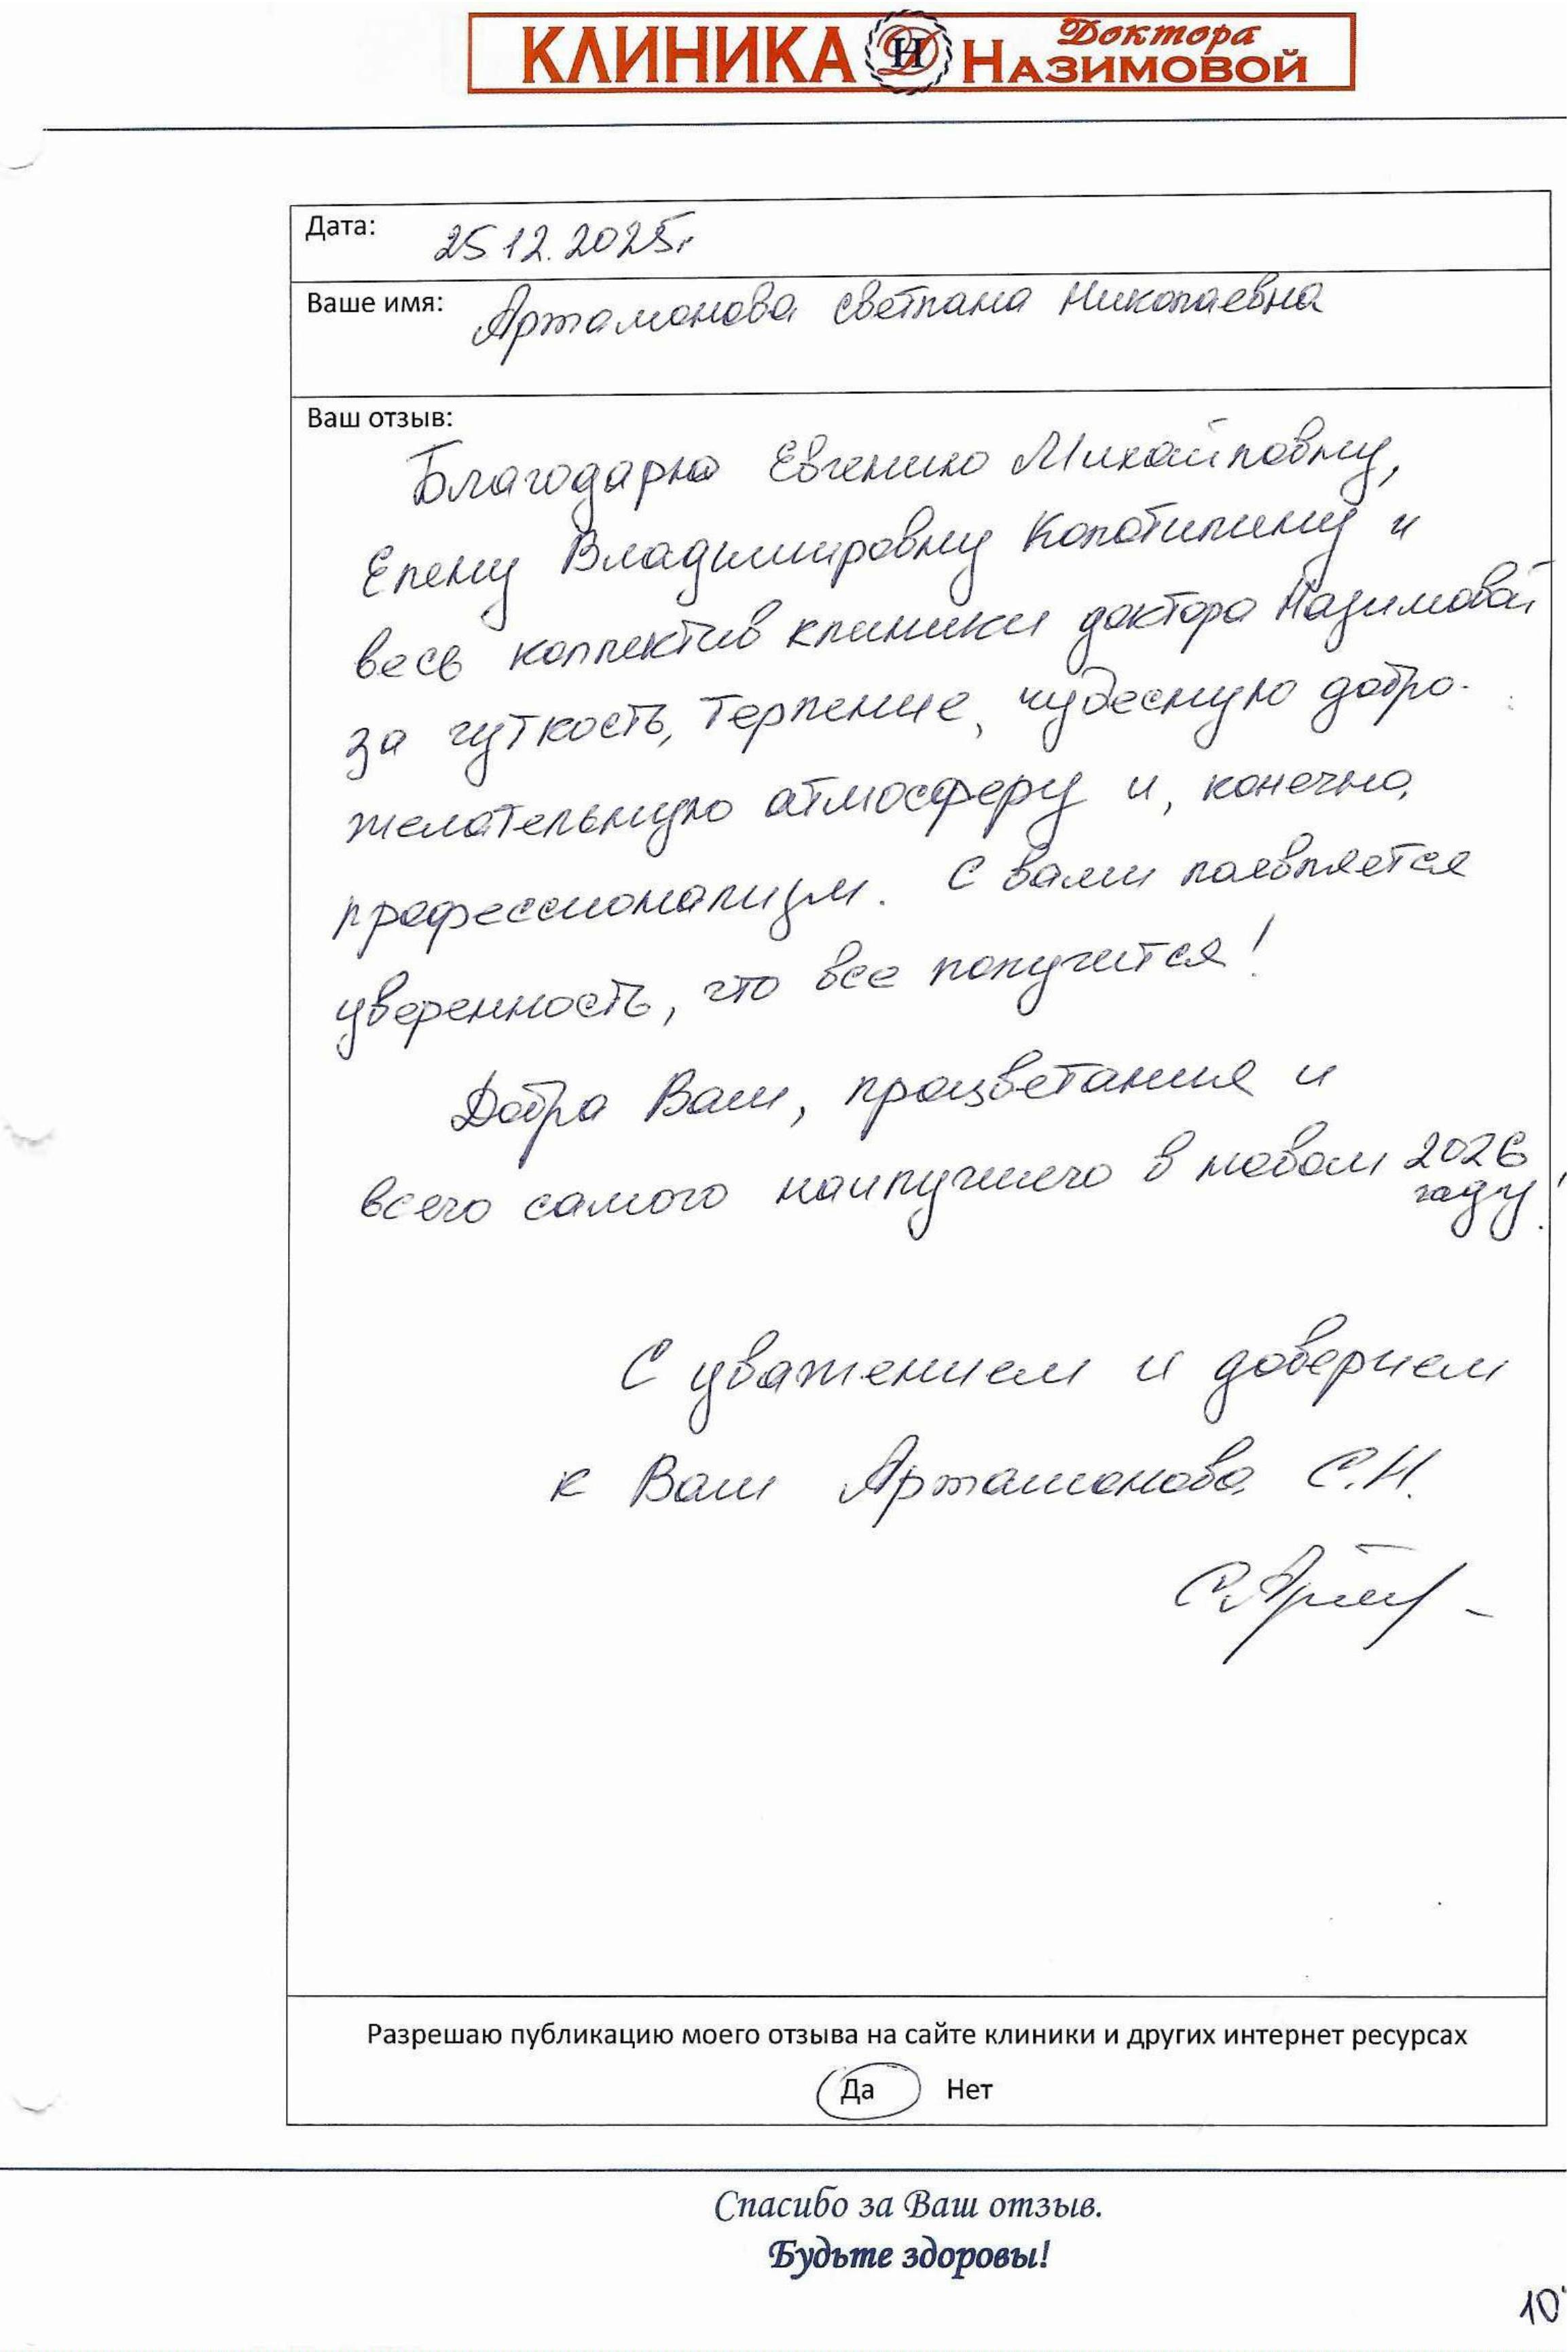 КЛИНИКА Доктора НАЗИМОВОЙ
Дата: 25.12.2025г
Ваше имя: Артамонова Светлана Николаевна
Ваш отзыв:
Благодарю Евгению Михайловну,
Елену Владимировну Колотилину и
весь коллектив клиники доктора Назимовой
за чуткость, терпение, чудесную добро-
желательную атмосферу и, конечно,
профессионализм. С вами появляется
уверенность, что все получится!
Добра Вам, процветания и
всего самого наилучшего в новом 2026
году!
С уважением и доверием
к Вам Артамонова С.Н.
Разрешаю публикацию моего отзыва на сайте клиники и других интернет ресурсах
Да Нет
Спасибо за Ваш отзыв.
Будьте здоровы!
10